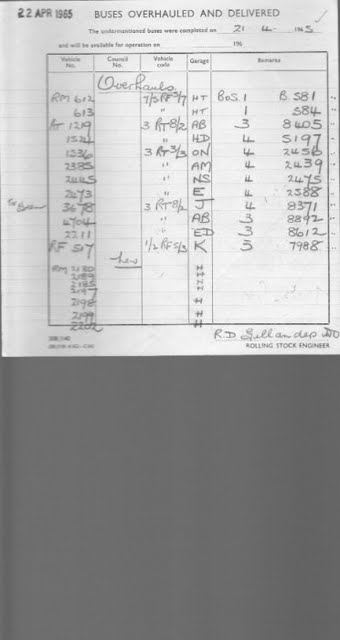 22 APR 1965 BUSES OVERHAULED AND DELIVERED
The undermentioned buses were completed on 21 - 4 - 1965
and will be available for operation on 196
Vehicle No. Council No. Vehicle code Garage Remarks
Overhauls
RM 612 7/5 RF 5/7 HT BOS. 1 B 581 "
613 " HT 1 584 "
RT 1219 3 RT 8/2 AB 3 8405 "
" HD 4 5197 "
1536 3 RT 3/3 ON 4 2456 "
2385 " AM 4 2439 "
2445 " NS 4 2475 "
2473 " E 4 2388 "
3678 3 RT 8/2 J 4 8371 "
4704 " AB 3 8892 "
2211 " ED 3 8612 "
RF 517 1/2 RF 5/3 K 3 7988 "
new
RM 2180 H
2189 H
2185 H
2197 H
2198 H
2199 H
2202 H
ROLLING STOCK ENGINEER